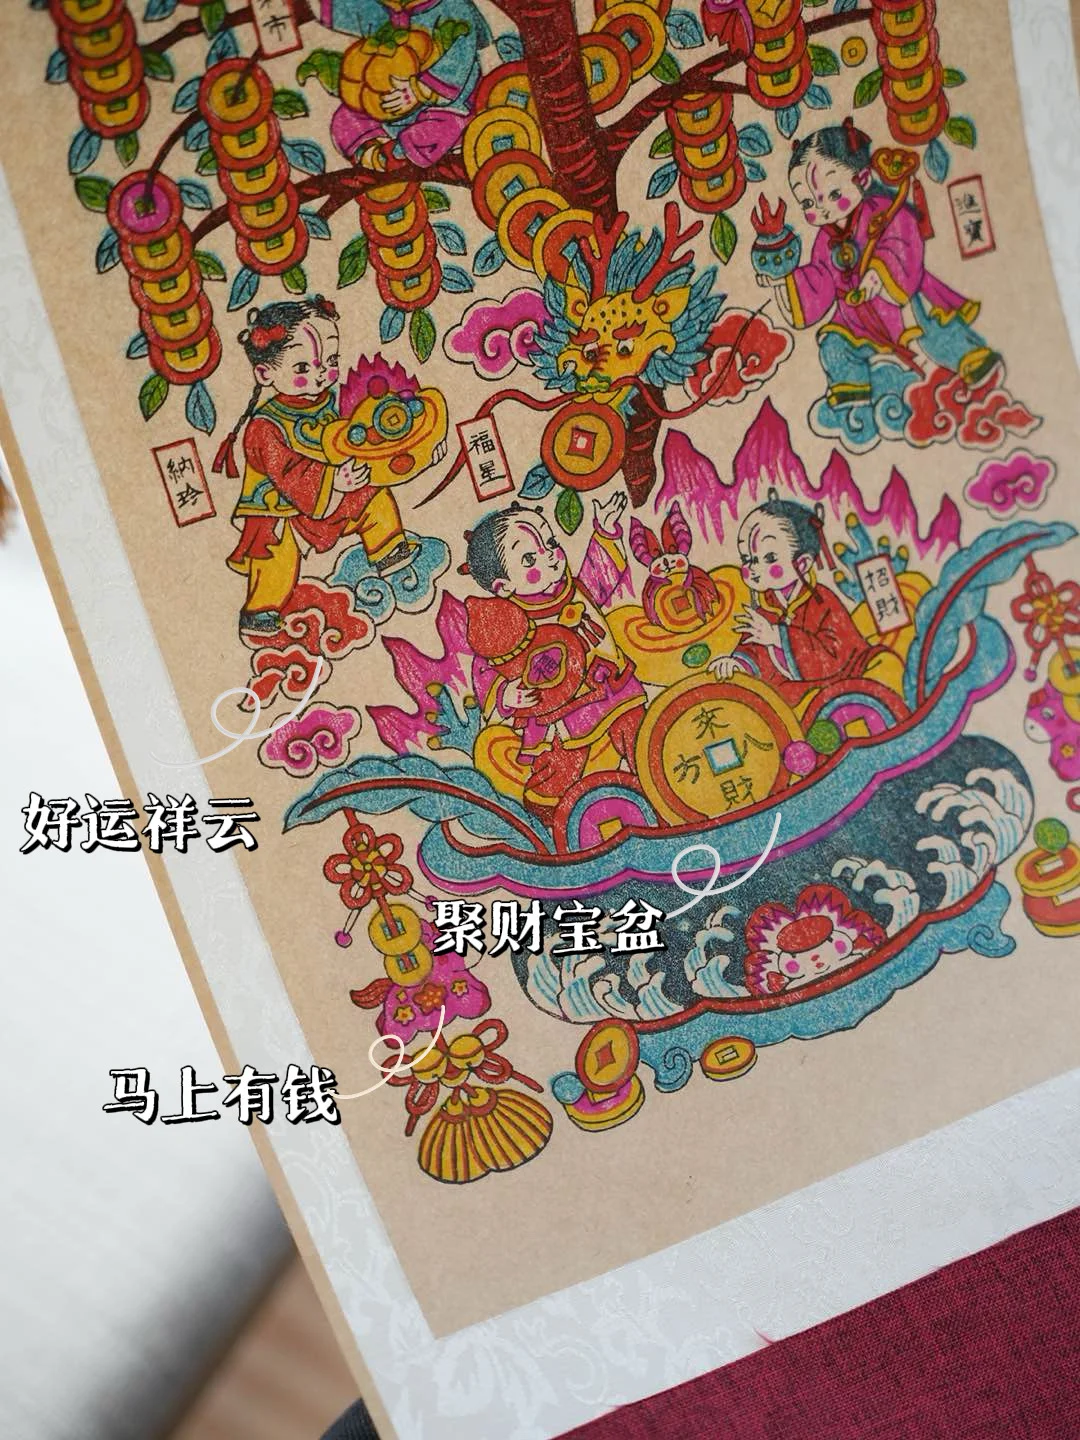 市
進寶
納珍
福星
招財
福
來八方財
好运祥云
聚财宝盆
马上有钱